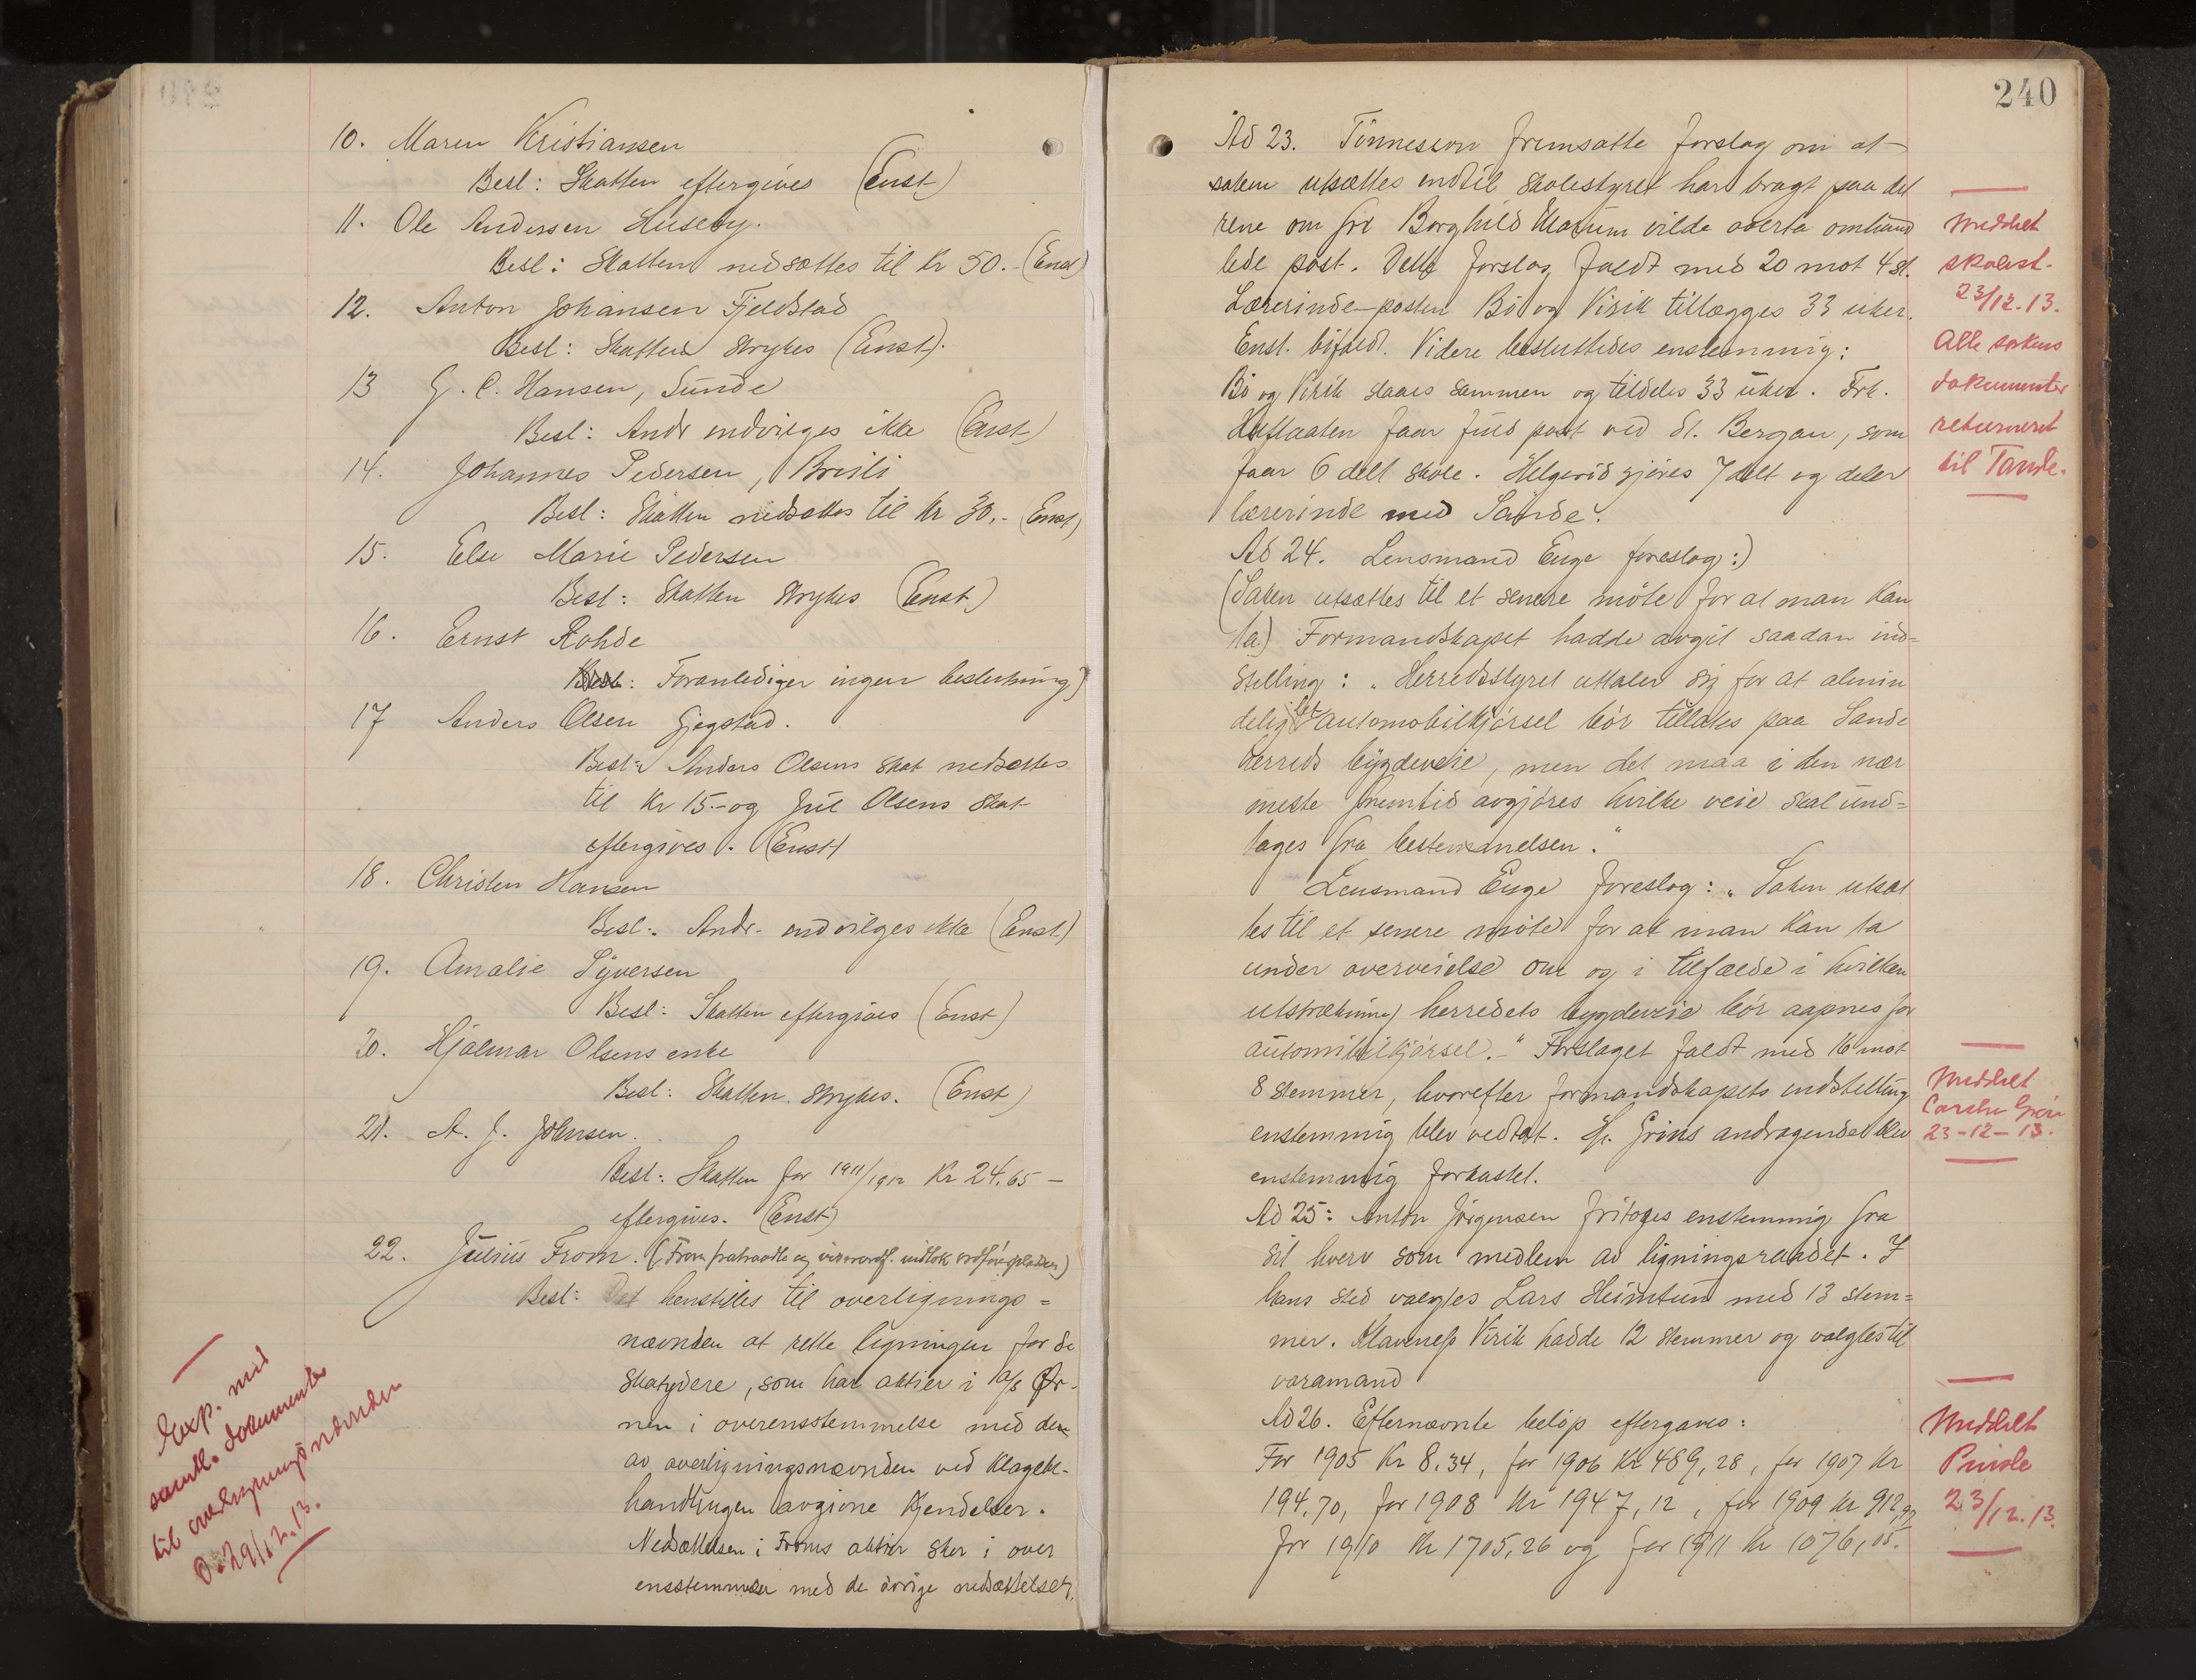 10. Maren Kristiansen
Besl: Skatten eftergives (Enst)
11. Ole Andersen Huseby.
Besl: Skatten nedsættes til Kr 50.- (Enst)
12. Anton Johansen Fjeldstad
Besl: Skatten strykes (Enst).
13 G. C. Hansen, Sunde
Besl: Andr indvilges ikke (Enst)
14. Johannes Pedersen, Breili
Besl: Skatten nedsættes til Kr 30.- (Enst)
15. Else Marie Pedersen
Besl: Skatten strykes (Enst)
16. Ernst Rohde
Foranlediger ingen beslutning)
17 Anders Olsen Gjegstad.
Besl: Anders Olsens skat nedsættes
til Kr 15.- og Jul Olsens skat
eftergives. (Enst)
18. Christen Hansen
Besl: Andr. indvilges ikke (Enst)
19. Amalie Syversen
Besl: Skatten eftergives (Enst)
20. Hjalmar Olsens enke
Besl: Skatten strykes. (Enst)
21. A. J. Johnsen.
Besl: Skatten for 1911/1912 Kr 24.65 –
eftergives. (Enst)
22. Julius From. (From fratraadte og viseordf. indtok ordførerpladsen)
Besl: Det henstilles til overlignings=
nævnden at rette ligningen for de
skatydere, som har aktier i A/S Ør-
nen i overensstemmelse med den
av overligningsnævnden ved klagebe-
handlingen avgivne kjendelser.
Nedsættelsen i Froms aktier sker i over
ensstemmelse med de øvrige nedsættelser.
Exp. med
samtl. dokumenter
til overligningsnævnden
29/12.13.
240
Ad 23. Tønnesson fremsatte forslag om at
saken utsættes indtil skolestyret har bragt paa det
rene om frk Borghild Marum vilde overta omhand
lede post. Dette forslag faldt med 20 mot 4 st.
Lærerinde-posten Bø og Virik tillægges 33 uker.
Enst. bifaldt. Videre besluttedes enstemmig:
Bø og Virik slaaes sammen og tildeles 33 uker. Frk.
faar fuld post ved st. Bergan, som
faar 6 delt skole. Helgerød gjøres 7 delt og deler
lærerinde med Sande.
Ad 24. Lensmand Enge foreslog:)
(Saken utsættes til et senere møte for at man kan
ta) Formandskapet hadde avgit saadan ind=
stilling: "Herredsstyret uttaler sig for at almin
delig automobilkjørsel bør tillates paa Sande
herreds bygdeveie, men det maa i den nær
meste fremtid avgjøres hvilke veie skal und=
tages fra bestemmelsen."
Lensmand Enge foreslog: "Saken utsæt
tes til et senere møte for at man kan ta
under overveielse om og i tilfælde i hvilken
utstrækning herredets bygdeveie bør aapnes for
automobilkjørsel.-" Forslaget faldt med 16 mot
8 stemmer, hvorefter formandskapets indstilling
enstemmig blev vedtat. Hr. Griis andragende blev
enstemmig forkastet.
Ad 25: Anton Jørgensen fritoges enstemmig fra
sit hverv som medlem av ligningsraadet. I
hans sted valgtes Lars Heimtun med 13 stem=
mer. Klavness Virik hadde 12 stemmer og valgtes til
varamand
Ad 26. Efternævnte beløp eftergaves:
For 1905 Kr 8.34, for 1906 Kr 489,28, for 1907 Kr
194,70, for 1908 Kr 1947,12, for 1909 Kr 912,97
for 1910 Kr 1705,26 og for 1911 Kr 1076,05.
Meddelt
skolest-
23/12.13.
Alle sakens
dokumenter
returneret
til Tande.
Meddelt
23-12-13.
Meddelt
Pinsle
23/12.13.